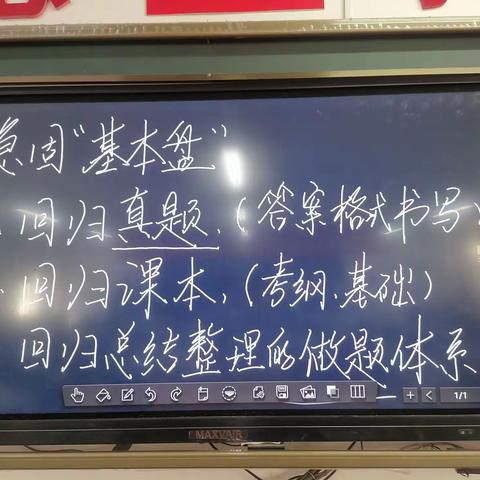 固“基本盘”
回归真题、(答案格式书写)
回归课本、(考纲、基础)
回归总结整理的做题体系
1/1
MAXVAIR